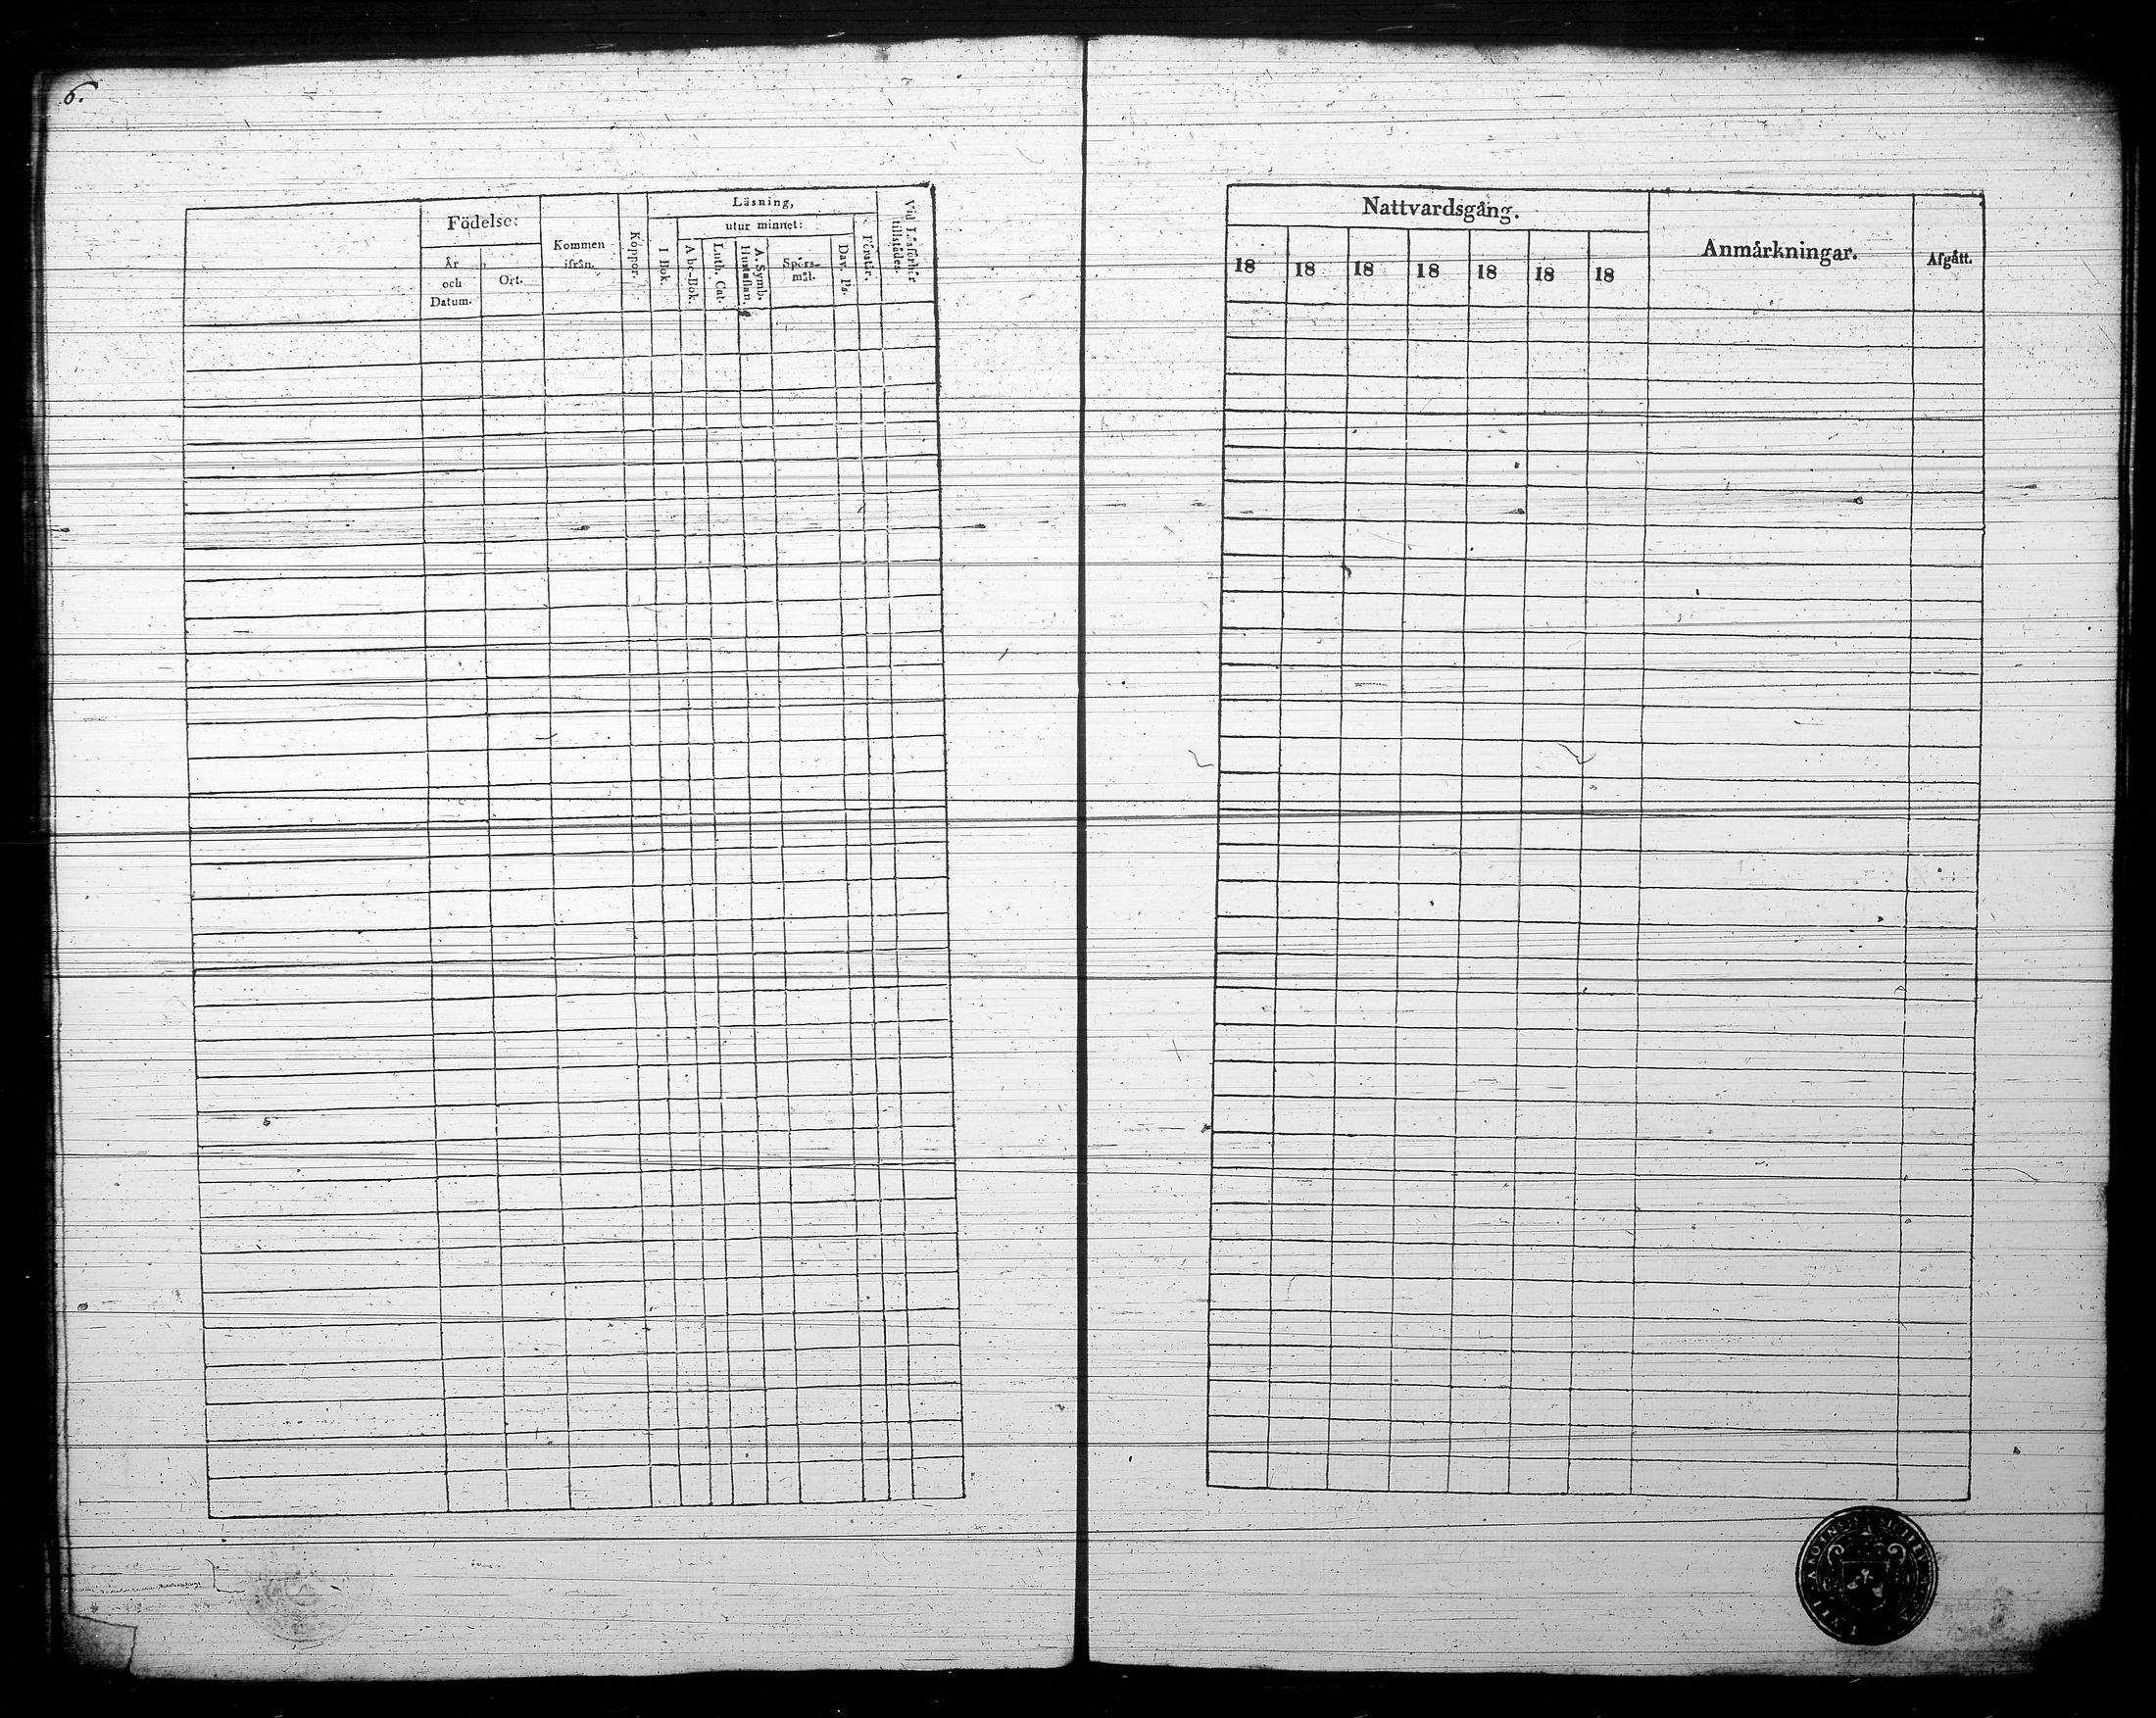 6.
Födelse:
År
och
Datum.
Ort.
Kommen
ifrån.
Koppor.
Läsning,
I Bok.
utur minnet:
Abc-Bok.
Luth. Cat.
A. Symb.
Hustaflan.
Spörs-
mål.
Dav. Ps.
Förstår.
Vid Läsförhör
tillstädes.
Nattvardsgång.
18 18 18 18 18 18 18
Anmärkningar.
Afgått.